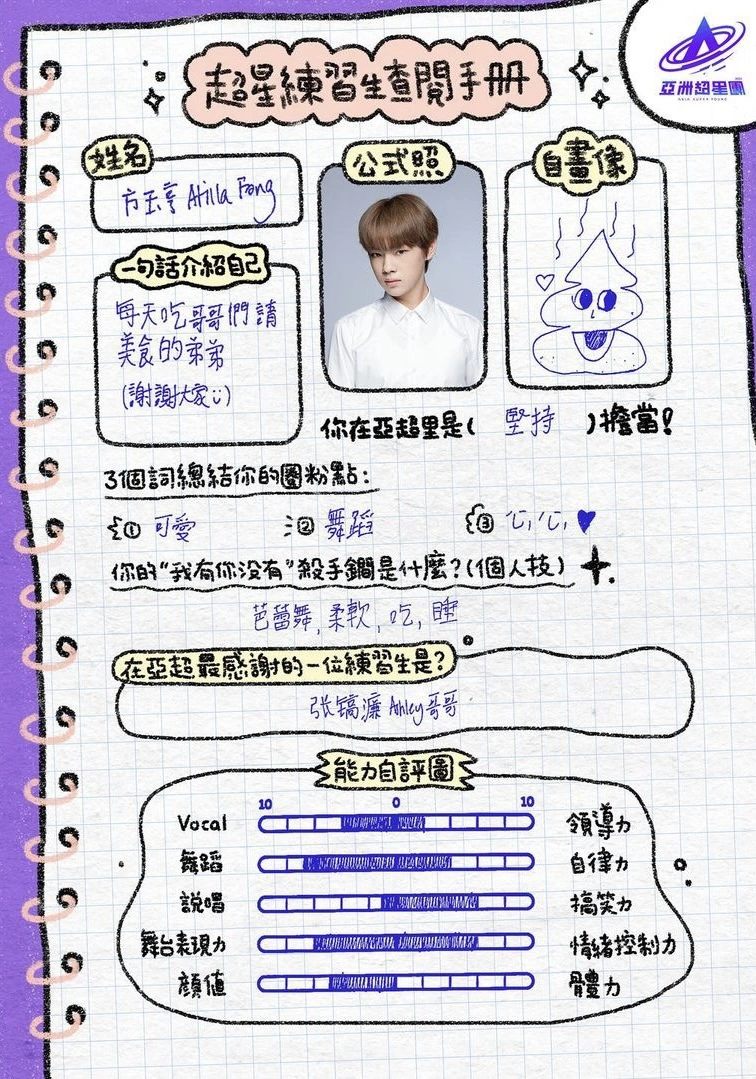 超星練習生查閱手冊
亞洲超星團
ASIA SUPER YOUNG
姓名
方玉亭 Atilla Fang
公式照
自畫像
一句話介紹自己
每天吃哥哥們請
美食的弟弟
(謝謝大家:)
你在亞超里是( 堅持 )擔當!
3個詞總結你的圈粉點:
① 可愛 ② 舞蹈 ③ 心,心,♥
你的"我有你没有"殺手鐧是什麼?(個人技)
芭蕾舞,柔軟,吃,睡
在亞超最感謝的一位練習生是?
张镐濂 Ashley哥哥
能力自評圖
10 0 10
Vocal 領導力
舞蹈 自律力
說唱 搞笑力
舞台表現力 情緒控制力
顏值 體力